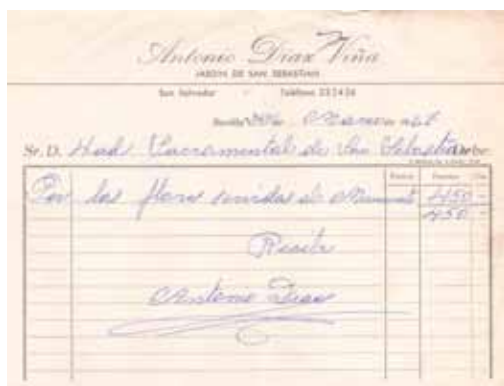 Antonio Diaz Viña
JARDIN DE SAN SEBASTIAN
San Salvador - Teléfono 232436
Sevilla de Marzo de 196
Sr. D. Had Sacramental de San Sebastian Debe:
Precio Pesetas Cts.
Por las flores servidas al Monumento 450 -
450 -
Recibí
Antonio Diaz